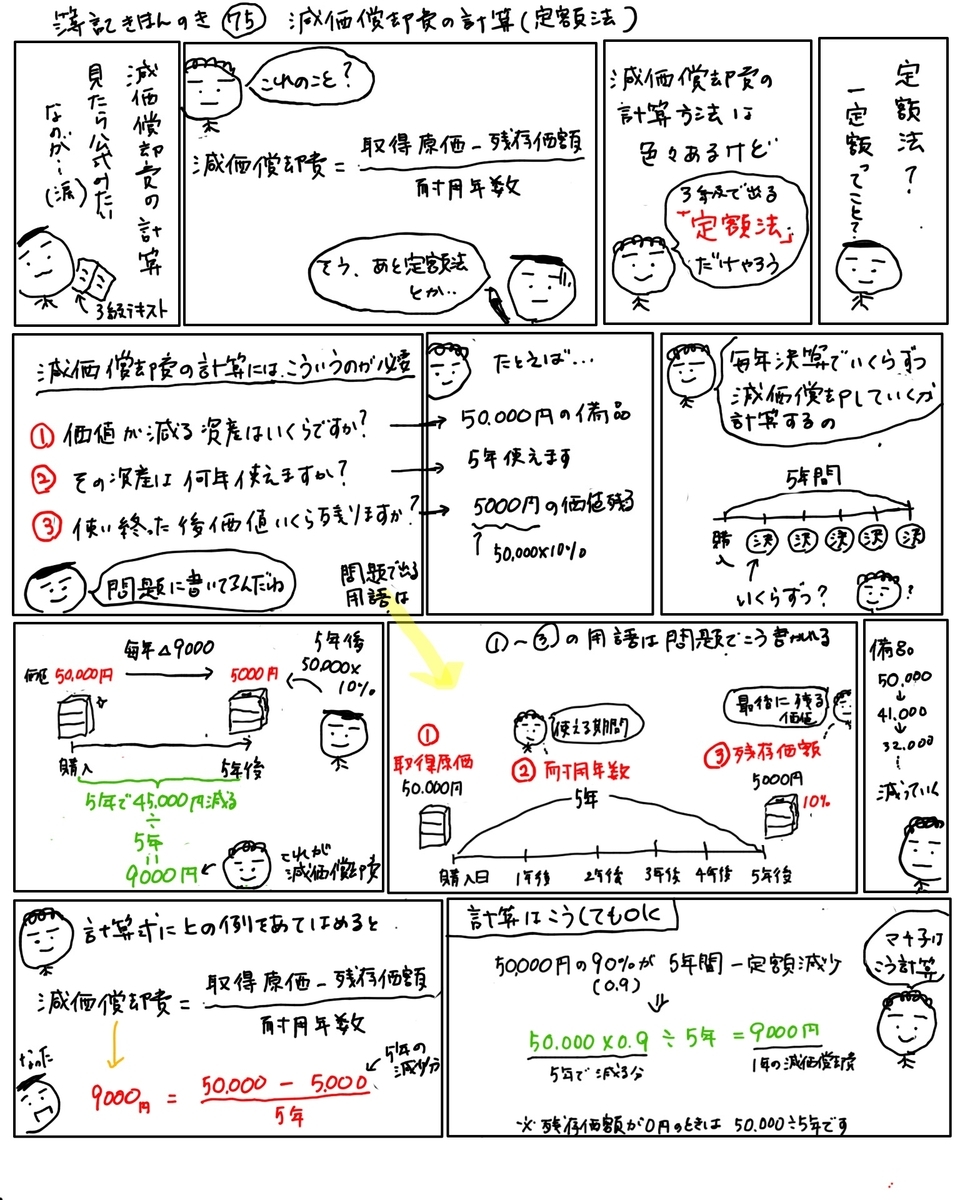 簿記きほんのき 75 減価償却費の計算(定額法)
減価償却費の計算
見たら公式みたい
なのが…(涙)
3級テキスト
これのこと?
減価償却費 = 取得原価 − 残存価額
耐用年数
そう、あと定額法
とか..
減価償却費の
計算方法は
色々あるけど
3級で出る
「定額法」
だけやろう
定額法?
一定額ってこと?
減価償却費の計算には、こういうのが必要
① 価値が減る資産はいくらですか?
② その資産は何年使えますか?
③ 使い終った後価値いくら残りますか?
問題に書いてるんだね
問題で出る
用語は
たとえば…
50.000円の備品
5年使えます
5000円の価値残る
50,000×10%
毎年決算でいくらずつ
減価償却していくか
計算するの
5年間
購入
決 決 決 決 決
いくらずつ?
?
毎年△9000
5年後
50.000×
10%
価値 50,000円
5000円
購入
5年後
5年で45,000円減る
÷
5年
=
9000円
これが
減価償却費
①〜③の用語は問題でこう書かれる
①
取得原価
50.000円
使える期間
② 耐用年数
5年
最後に残る
価値
③ 残存価額
5000円
10%
購入日 1年後 2年後 3年後 4年後 5年後
備品
50.000
↓
41.000
↓
32.000
↓
減っていく
計算式に上の例をあてはめると
減価償却費 = 取得原価 − 残存価額
耐用年数
なった
5年の
減少分
9000円 = 50,000 − 5,000
5年
計算はこうしてもOK
マナ子は
こう計算
50,000円の90%が 5年間一定額減少
(0.9)
50.000×0.9 ÷ 5年 = 9000円
5年で減る分
1年の減価償却費
※ 残存価額が0円のときは 50.000÷5年です